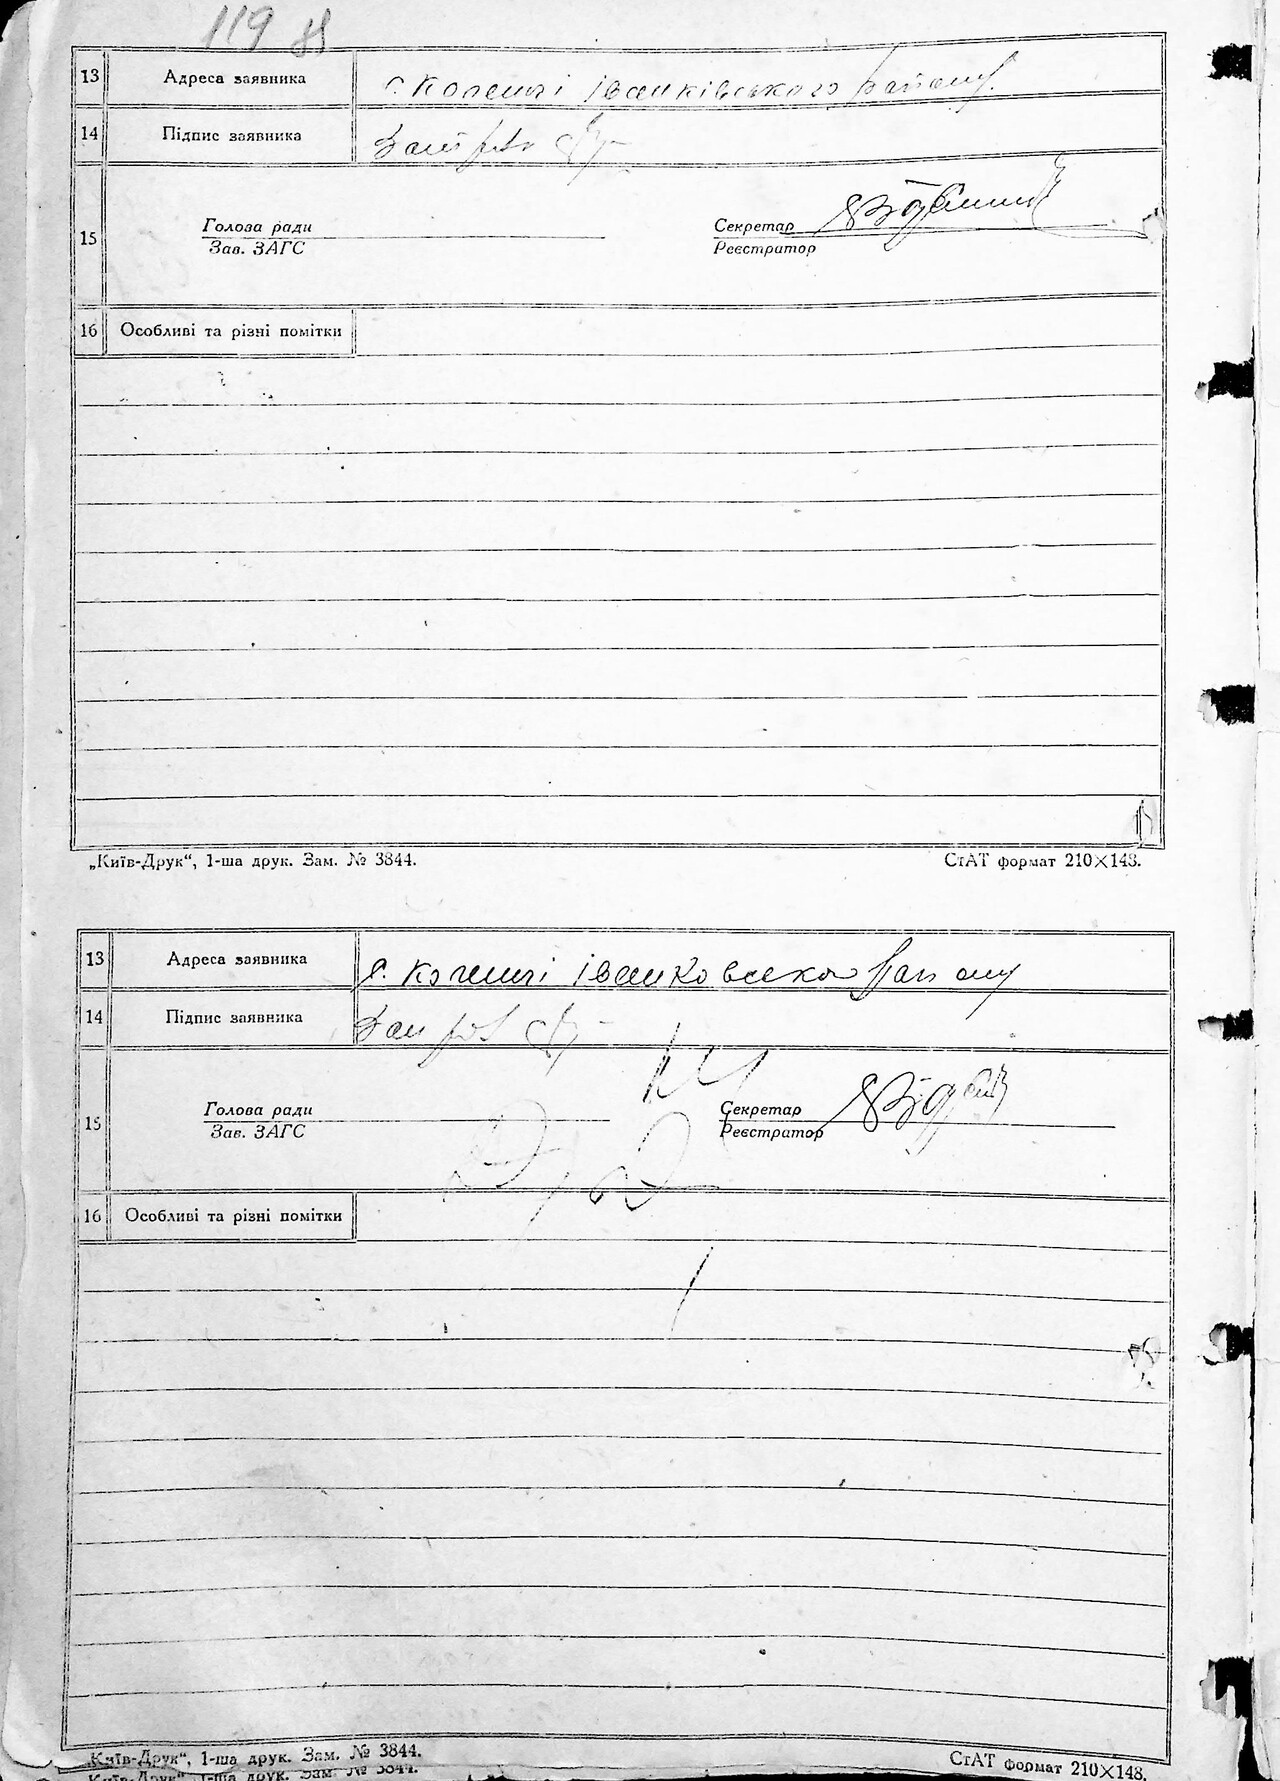 119
13 Адреса заявника с. Коленці Іванківського району.
14 Підпис заявника
Голова ради Секретар
15
Зав. ЗАГС Реєстратор
16 Особливі та різні помітки
„Київ-Друк“, 1-ша друк. Зам. № 3844. СтАТ формат 210×148.
13 Адреса заявника с. Коленці Іванковського району
14 Підпис заявника
Голова ради Секретар
15
Зав. ЗАГС Реєстратор
16 Особливі та різні помітки
„Київ-Друк“, 1-ша друк. Зам. № 3844. СтАТ формат 210×148.
„Київ-Друк“, 1-ша друк. Зам. № 3844.